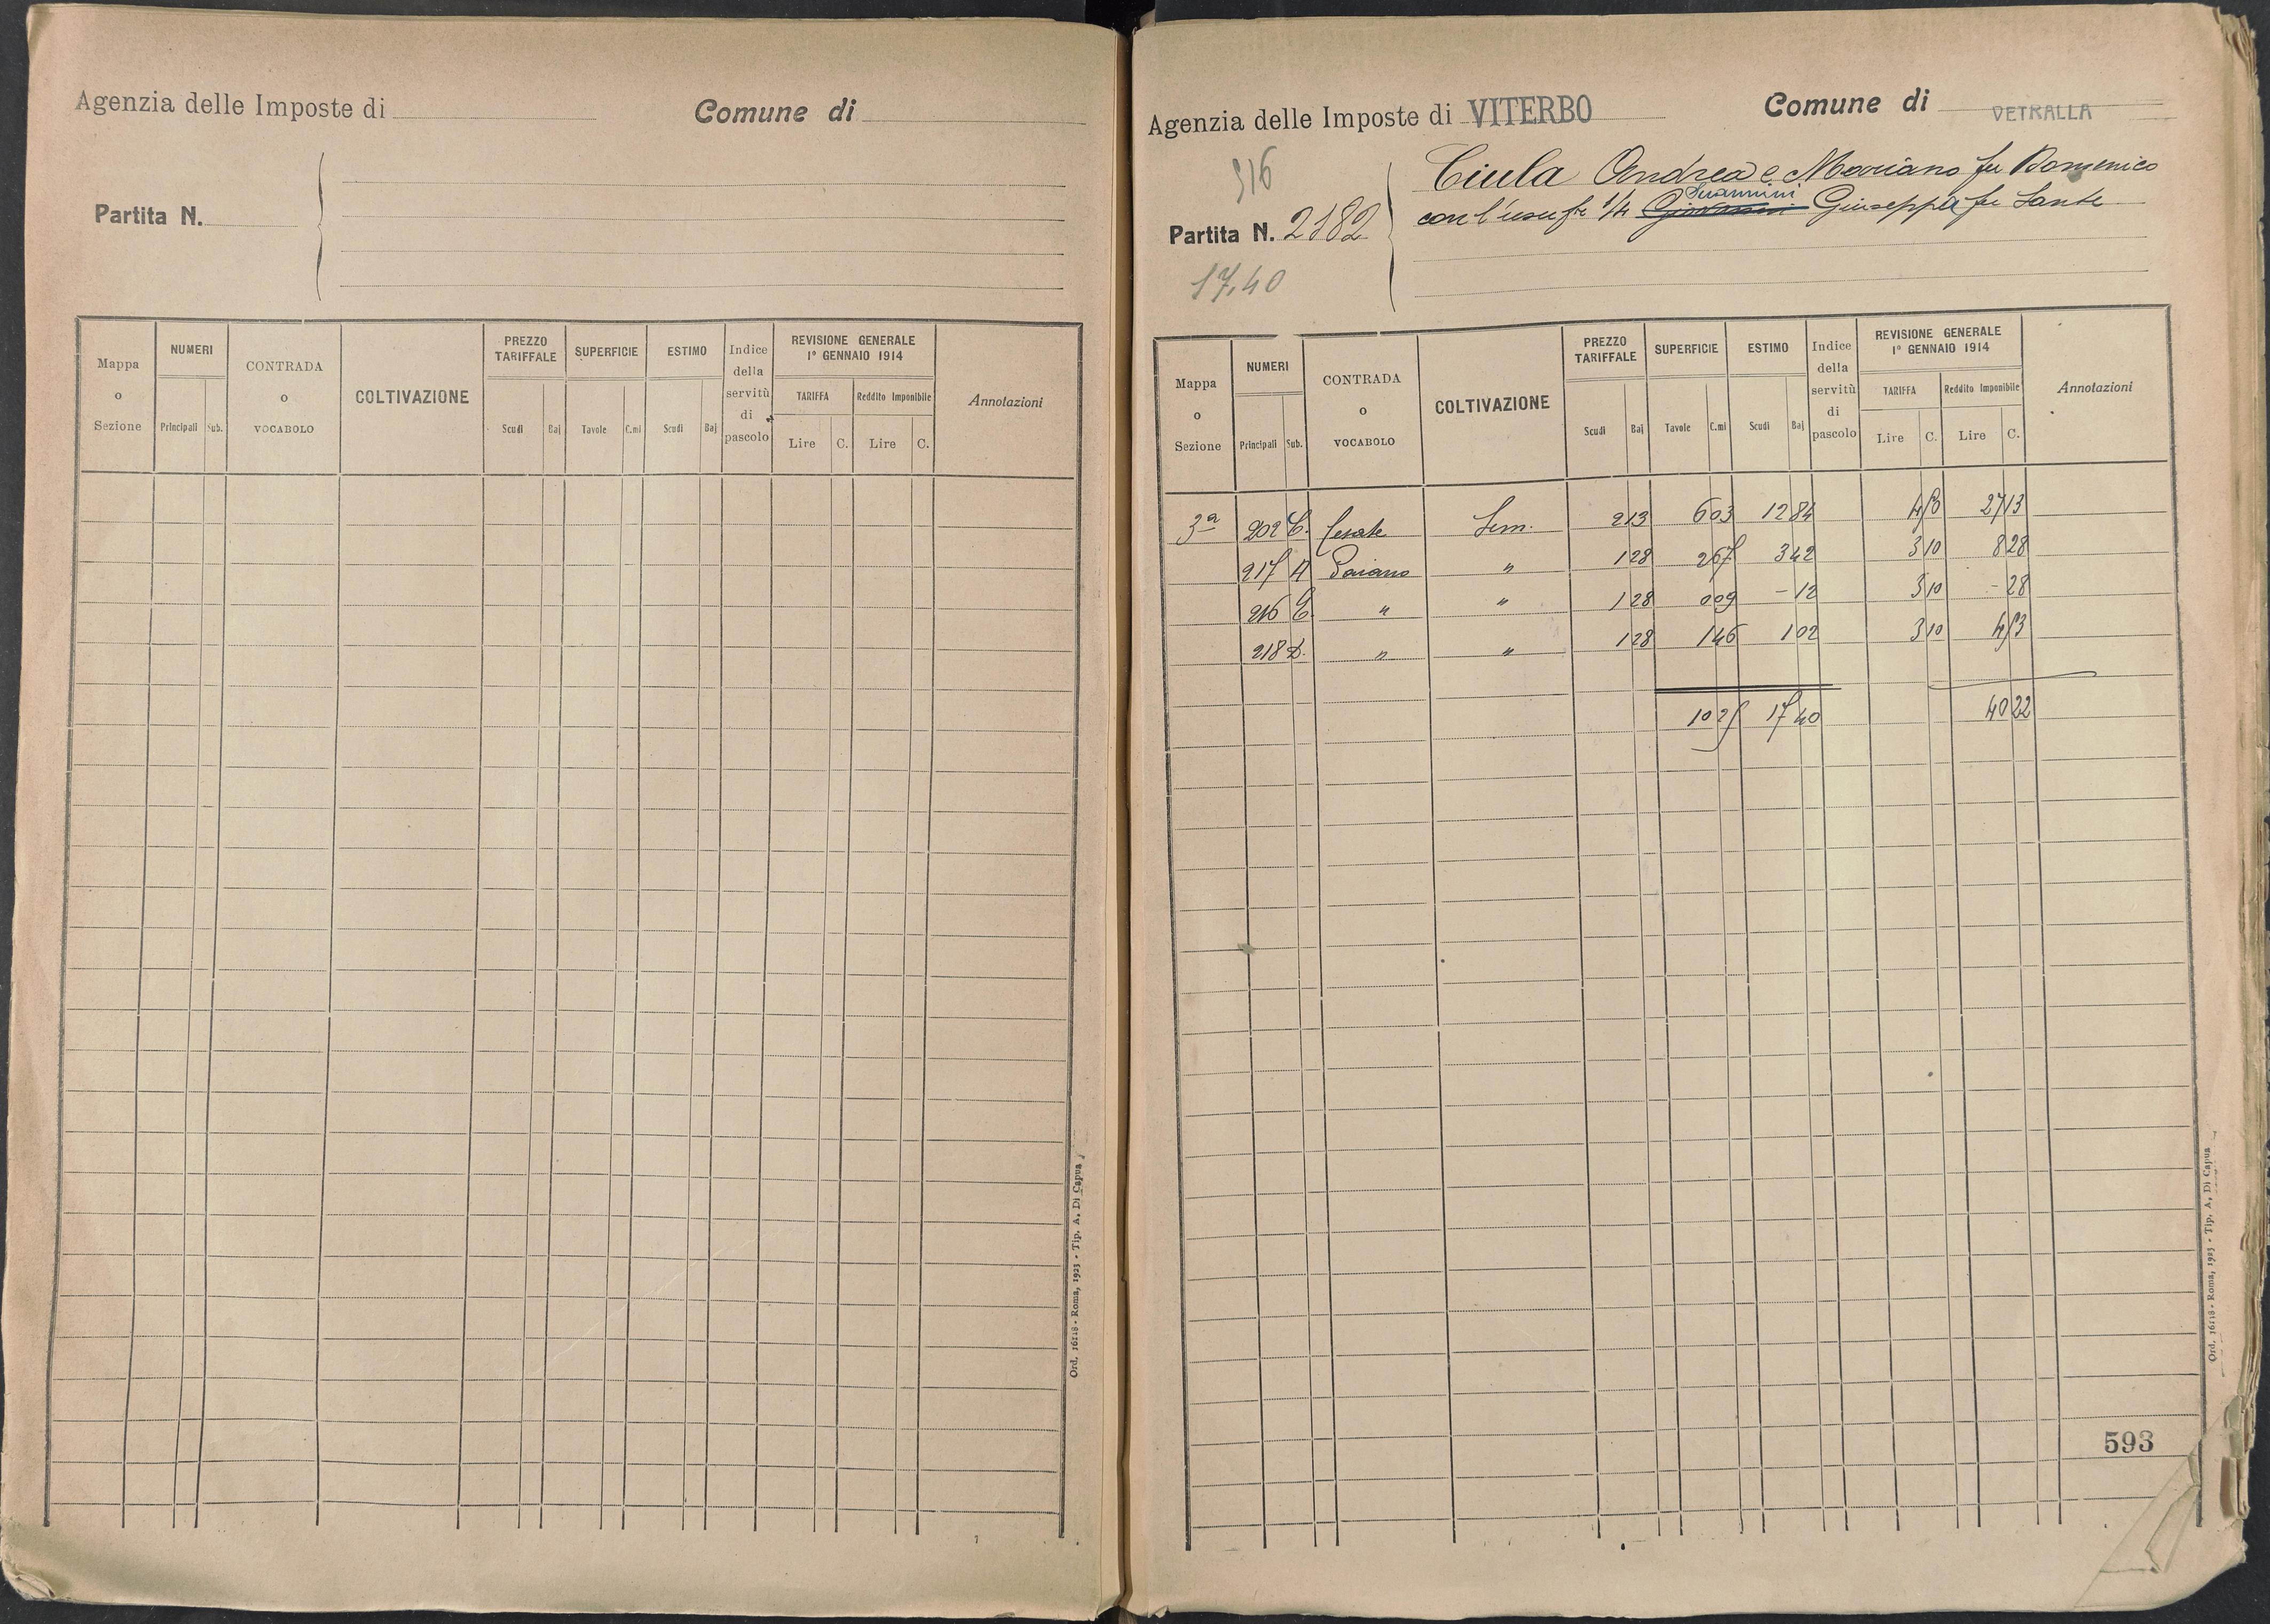 Agenzia delle Imposte di
Comune di
Partita N.
Mappa o Sezione
NUMERI
Principali Sub.
CONTRADA o VOCABOLO
COLTIVAZIONE
PREZZO TARIFFALE
Scudi Baj
SUPERFICIE
Tavole C.mi
ESTIMO
Scudi Baj
Indice della servitù di pascolo
REVISIONE GENERALE 1° GENNAIO 1914
TARIFFA Reddito Imponibile
Lire C. Lire C.
Annotazioni
Ord. 16118 - Roma, 1923 - Tip. A. Di Capua
Agenzia delle Imposte di VITERBO
Comune di VETRALLA
516
Ciula Andrea e Mariano fu Domenico
con l'usufr. 1/4 Giuseppa fu Sante
Partita N. 2182
17,40
Mappa o Sezione
NUMERI
Principali Sub.
CONTRADA o VOCABOLO
COLTIVAZIONE
PREZZO TARIFFALE
Scudi Baj
SUPERFICIE
Tavole C.mi
ESTIMO
Scudi Baj
Indice della servitù di pascolo
REVISIONE GENERALE 1° GENNAIO 1914
TARIFFA Reddito Imponibile
Lire C. Lire C.
Annotazioni
3a 202 Sem. 2 13 6 03 12 84 27 13
217 A " 1 28 2 67 3 42 3 10 8 28
216 " " 1 28 0 09 - 12 3 10 - 28
218 " " 1 28 1 46 1 02 3 10
17 40 40 22
593
Ord. 16118 - Roma, 1923 - Tip. A. Di Capua